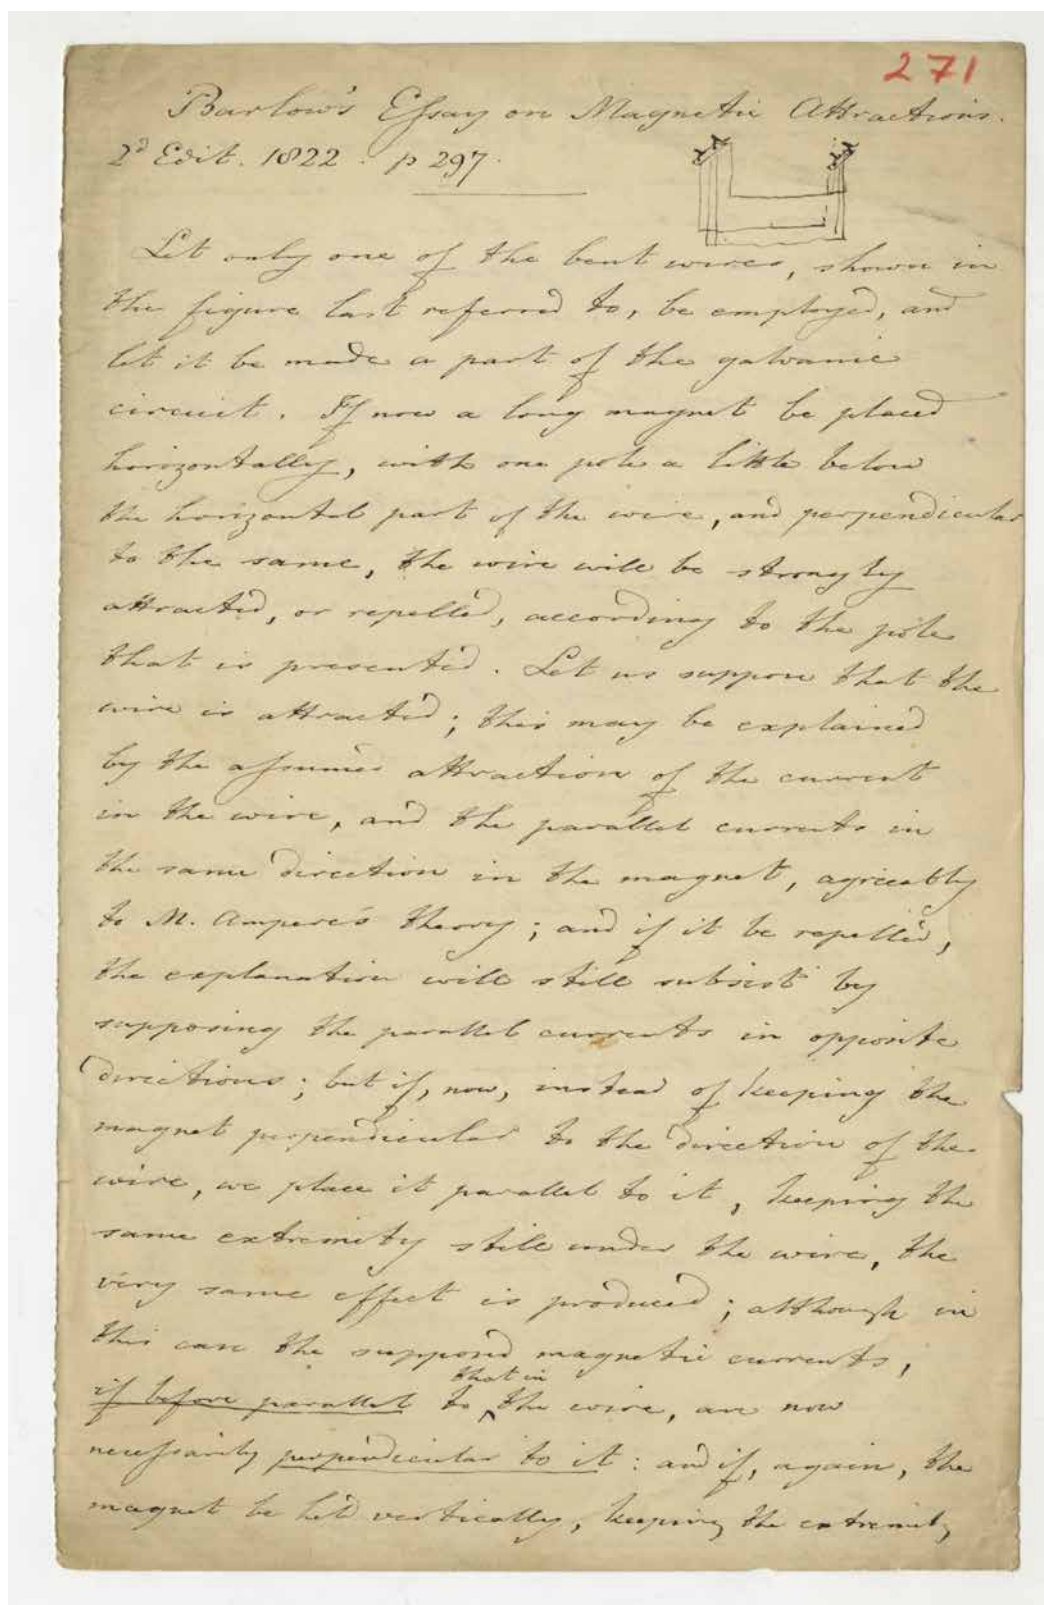 271
Barlow's Essay on Magnetic Attractions.
2d Edit. 1822. p 297.
Let only one of the bent wires, shown in
the figure last referred to, be employed, and
let it be made a part of the galvanic
circuit. If now a long magnet be placed
horizontally, with one pole a little below
the horizontal part of the wire, and perpendicular
to the same, the wire will be strongly
attracted, or repelled, according to the pole
that is presented. Let us suppose that the
wire is attracted; this may be explained
by the assumed attraction of the current
in the wire, and the parallel currents in
the same direction in the magnet, agreeably
to M. Ampere's theory; and if it be repelled,
the explanation will still subsist by
supposing the parallel currents in opposite
directions; but if, now, instead of keeping the
magnet perpendicular to the direction of the
wire, we place it parallel to it, keeping the
same extremity still under the wire, the
very same effect is produced; although in
this case the supposed magnetic currents,
if before parallel to that in the wire, are now
necessarily perpendicular to it: and if, again, the
magnet be held vertically, keeping the extremity